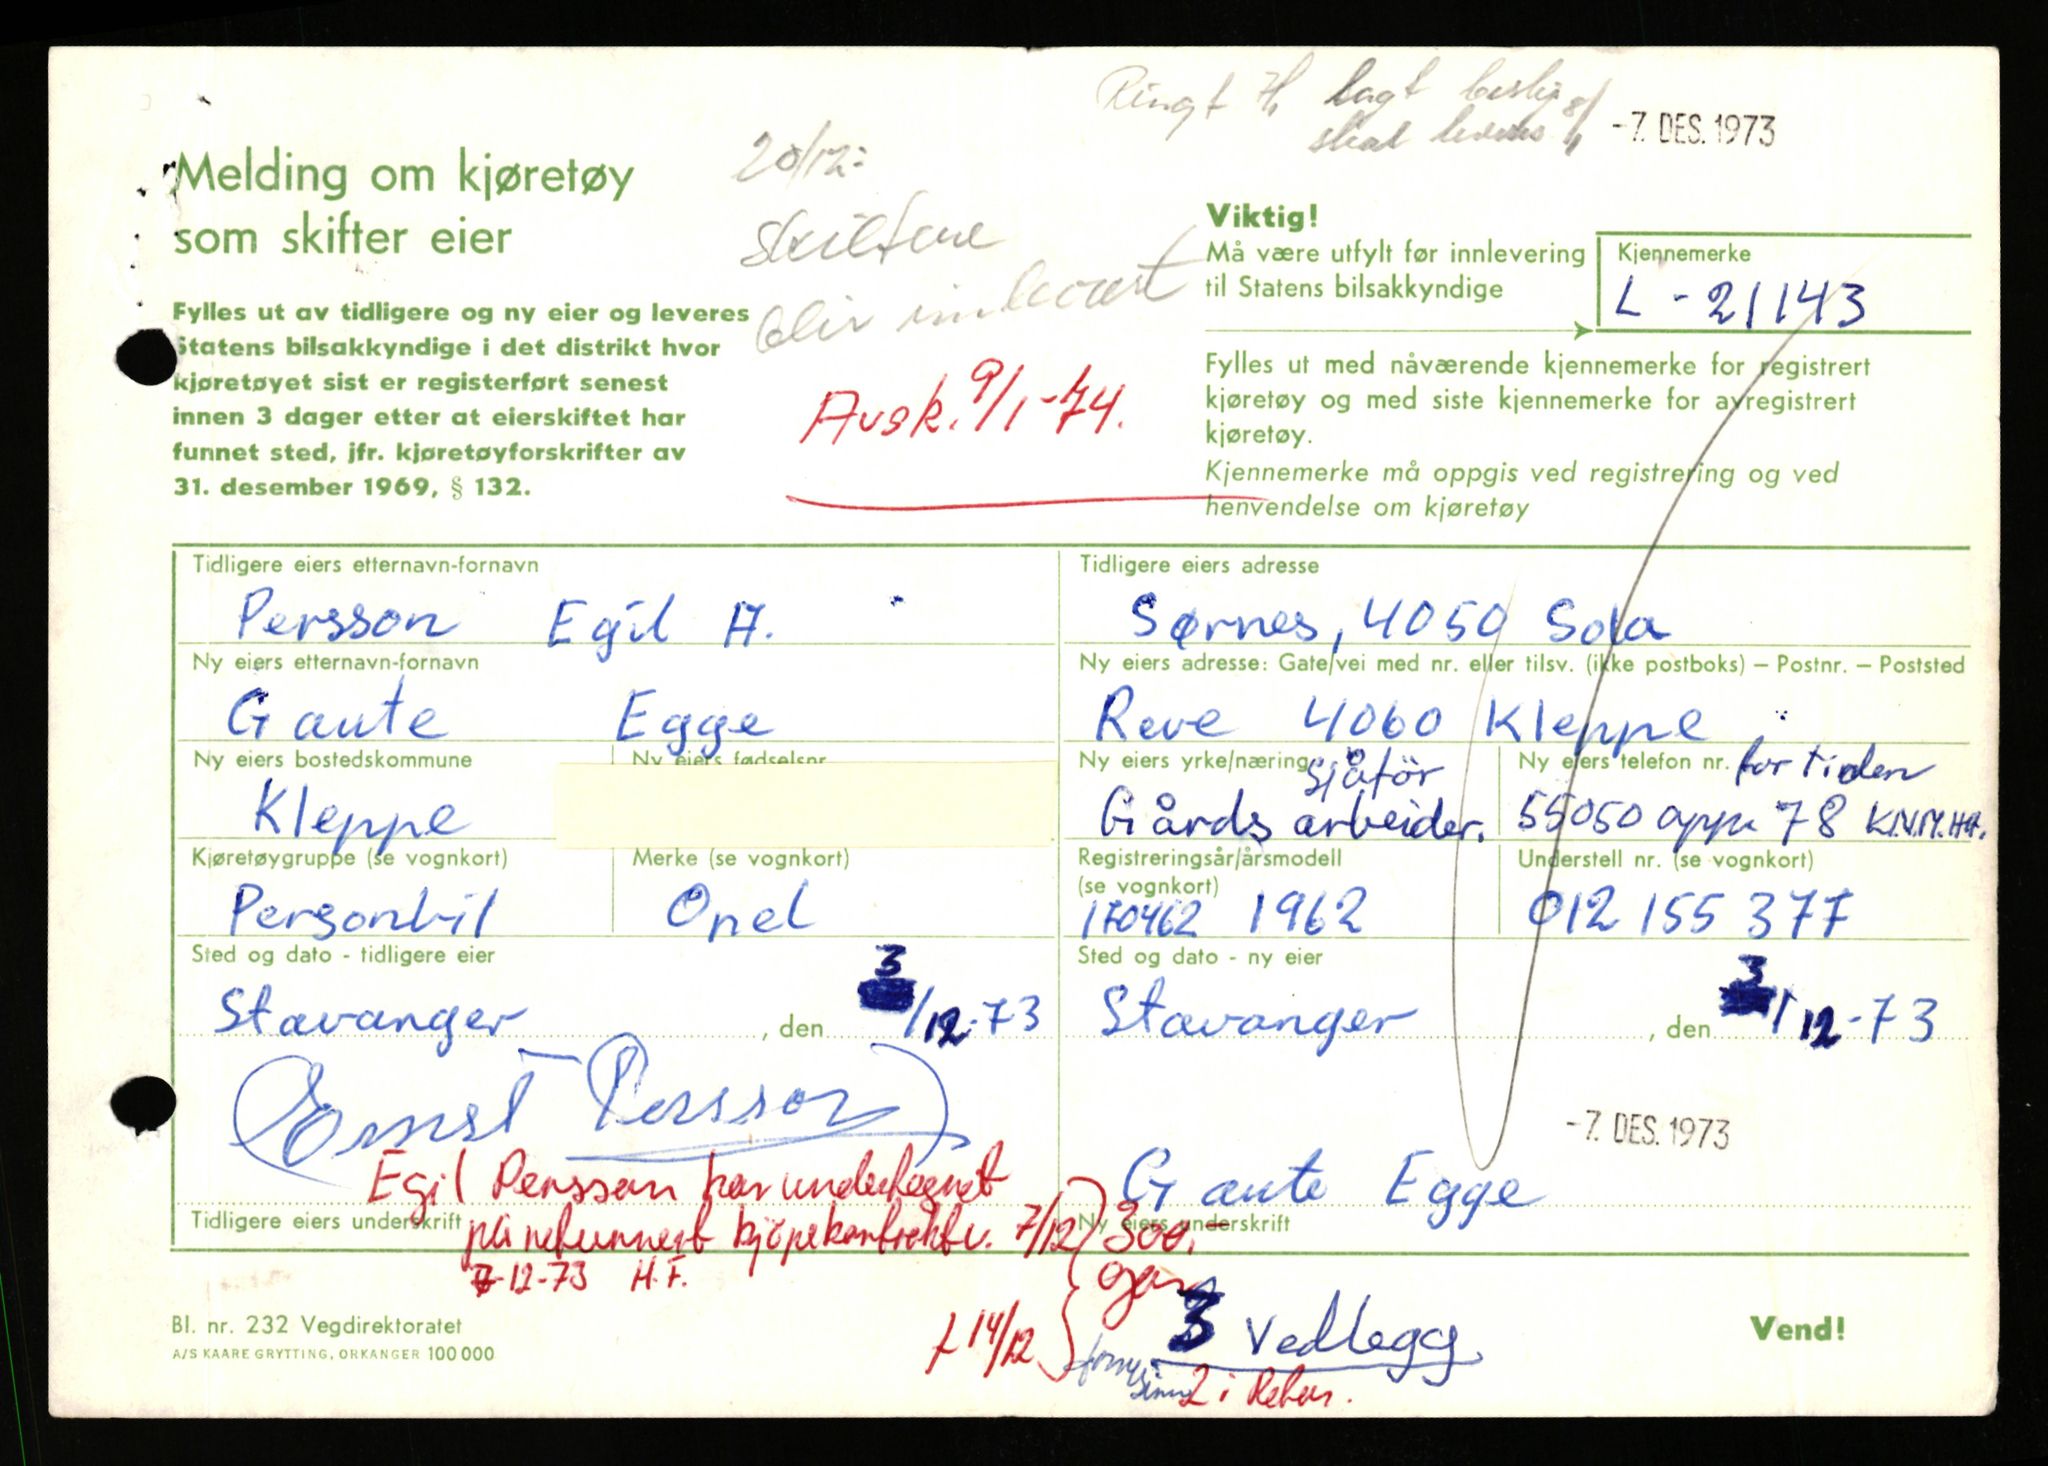 Ringt 7/1 sagt beskj
skal leveres 8/1
-7. DES. 1973
20/12:
skiltene
blir innlevert
Melding om kjøretøy
som skifter eier
Viktig!
Må være utfylt før innlevering
til Statens bilsakkyndige
Kjennemerke
L - 21143
Fylles ut av tidligere og ny eier og leveres
Statens bilsakkyndige i det distrikt hvor
kjøretøyet sist er registerført senest
innen 3 dager etter at eierskiftet har
funnet sted, jfr. kjøretøyforskrifter av
31. desember 1969, § 132.
Avsk. 9/1-74.
Fylles ut med nåværende kjennemerke for registrert
kjøretøy og med siste kjennemerke for avregistrert
kjøretøy.
Kjennemerke må oppgis ved registrering og ved
henvendelse om kjøretøy
Tidligere eiers etternavn-fornavn
Persson Egil A.
Tidligere eiers adresse
Sørnes, 4050 Sola
Ny eiers etternavn-fornavn
Gaute Egge
Ny eiers adresse: Gate/vei med nr. eller tilsv. (ikke postboks) – Postnr. – Poststed
Reve 4060 Kleppe
Ny eiers bostedskommune
Kleppe
Ny eiers fødselsnr.
Ny eiers yrke/næring
sjåfør
Gårds arbeider.
Ny eiers telefon nr.
for tiden
55050 app. 78 K.N.M.H.H.
Kjøretøygruppe (se vognkort)
Personbil
Merke (se vognkort)
Opel
Registreringsår/årsmodell
(se vognkort)
170462 1962
Understell nr. (se vognkort)
012 155 377
Sted og dato - tidligere eier
Stavanger, den 3/12-73
Sted og dato - ny eier
Stavanger, den 3/12-73
Ernst Persson
-7. DES. 1973
Egil Persson har undertegnet
på returnert kjøpekontrakt v. 7/12
7-12-73 H.F.
Tidligere eiers underskrift
Gaute Egge
Ny eiers underskrift
300,-
gen
L 14/12
3 Vedlegg
2 i Retur.
Bl. nr. 232 Vegdirektoratet
A/S KAARE GRYTTING, ORKANGER 100 000
Vend!